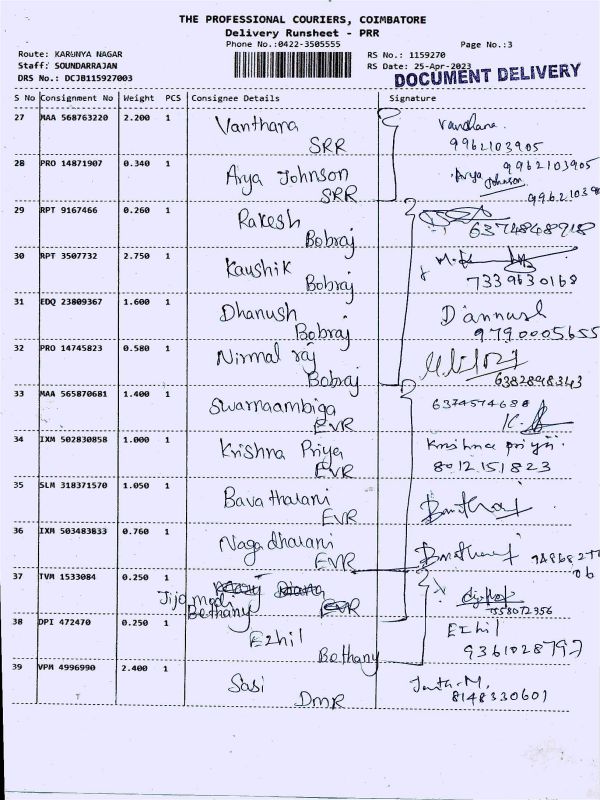 THE PROFESSIONAL COURIERS, COIMBATORE
Delivery Runsheet - PRR
Phone No.:0422-3505555
Page No.:3
Route: KARUNYA NAGAR
RS No.: 1159270
Staff: SOUNDARRAJAN
RS Date: 25-Apr-2023
DRS No.: DCJB115927003
DOCUMENT DELIVERY
S No Consignment No Weight PCS Consignee Details Signature
27 MAA 568763220 2.200 1 Vanthana Vandana
SRR 9962103905
28 PRO 14871907 0.340 1 Arya Johnson 9962103905
SRR Arya Johnson
29 RPT 9167466 0.260 1 Rakesh
Bobraj 6374848918
30 RPT 3507732 2.750 1 Kaushik
Bobraj 7339630168
31 EDQ 23809367 1.600 1 Dhanush Dannush
Bobraj 9790005655
32 PRO 14745823 0.580 1 Nirmal raj
Bobraj 6382898343
33 MAA 565870681 1.400 1 Swarnaambiga 6374574688
EVR
34 IXM 502830858 1.000 1 Krishna Priya Krishna priya.
EVR 8012151823
35 SLM 318371570 1.050 1 Bavatharani
EVR
36 IXM 503483833 0.760 1 Nagadharani
EVR
37 TVM 1533084 0.250 1
Jijo modi
Bethany EVR
38 DPI 472470 0.250 1 Ezhil Ezhil
Bethany 9361028797
39 VPM 4996990 2.400 1 Sasi
DMR 8148330601